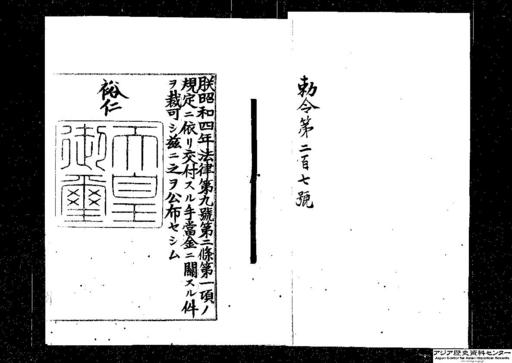 勅令第二百七號
朕昭和四年法律第九號第二條第一項ノ
規定ニ依リ交付スル手當金ニ關スル件
ヲ裁可シ茲ニ之ヲ公布セシム
裕仁
天皇
御璽
アジア歴史資料センター
Japan Center for Asian Historical Records